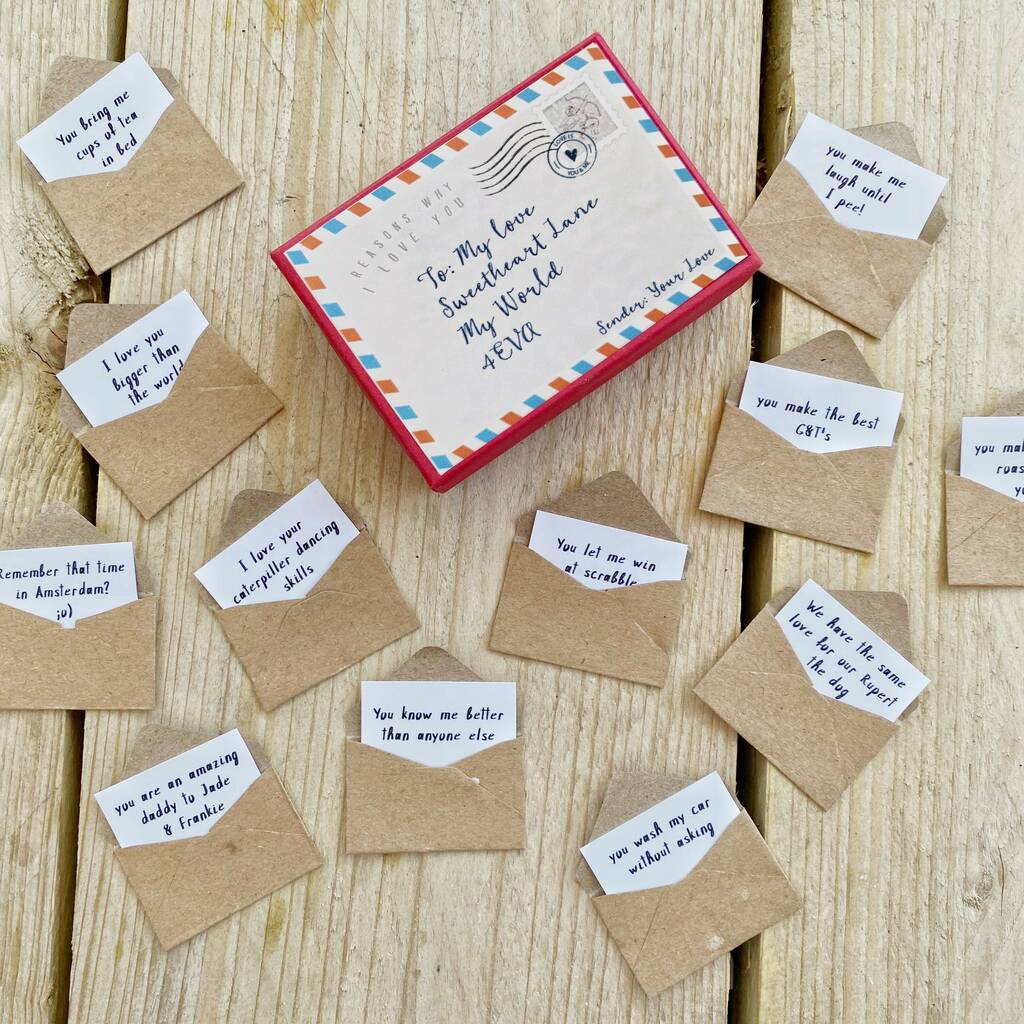 You bring me
cups of tea
in bed
REASONS WHY
I LOVE YOU
LOVE IS
YOU & ME
To: My love
Sweetheart Lane
My World
4EVA
Sender: Your Love
you make me
laugh until
I pee!
I love you
bigger than
the world
you make the best
G&T's
you
Remember that time
in Amsterdam?
;o)
I love your
caterpiller dancing
skills
You let me win
at scrabble
We have the same
love for our Rupert
the dog
You know me better
than anyone else
you are an amazing
daddy to Jade
& Frankie
you wash my car
without asking